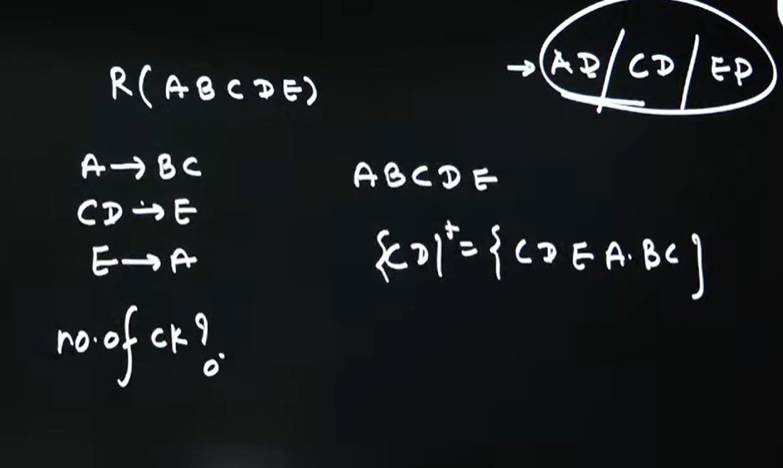 → AD / CD / ED
R(ABCDE)
A → BC
CD → E
E → A
ABCDE
{CD}⁺ = {CDEA.BC}
no. of CK?